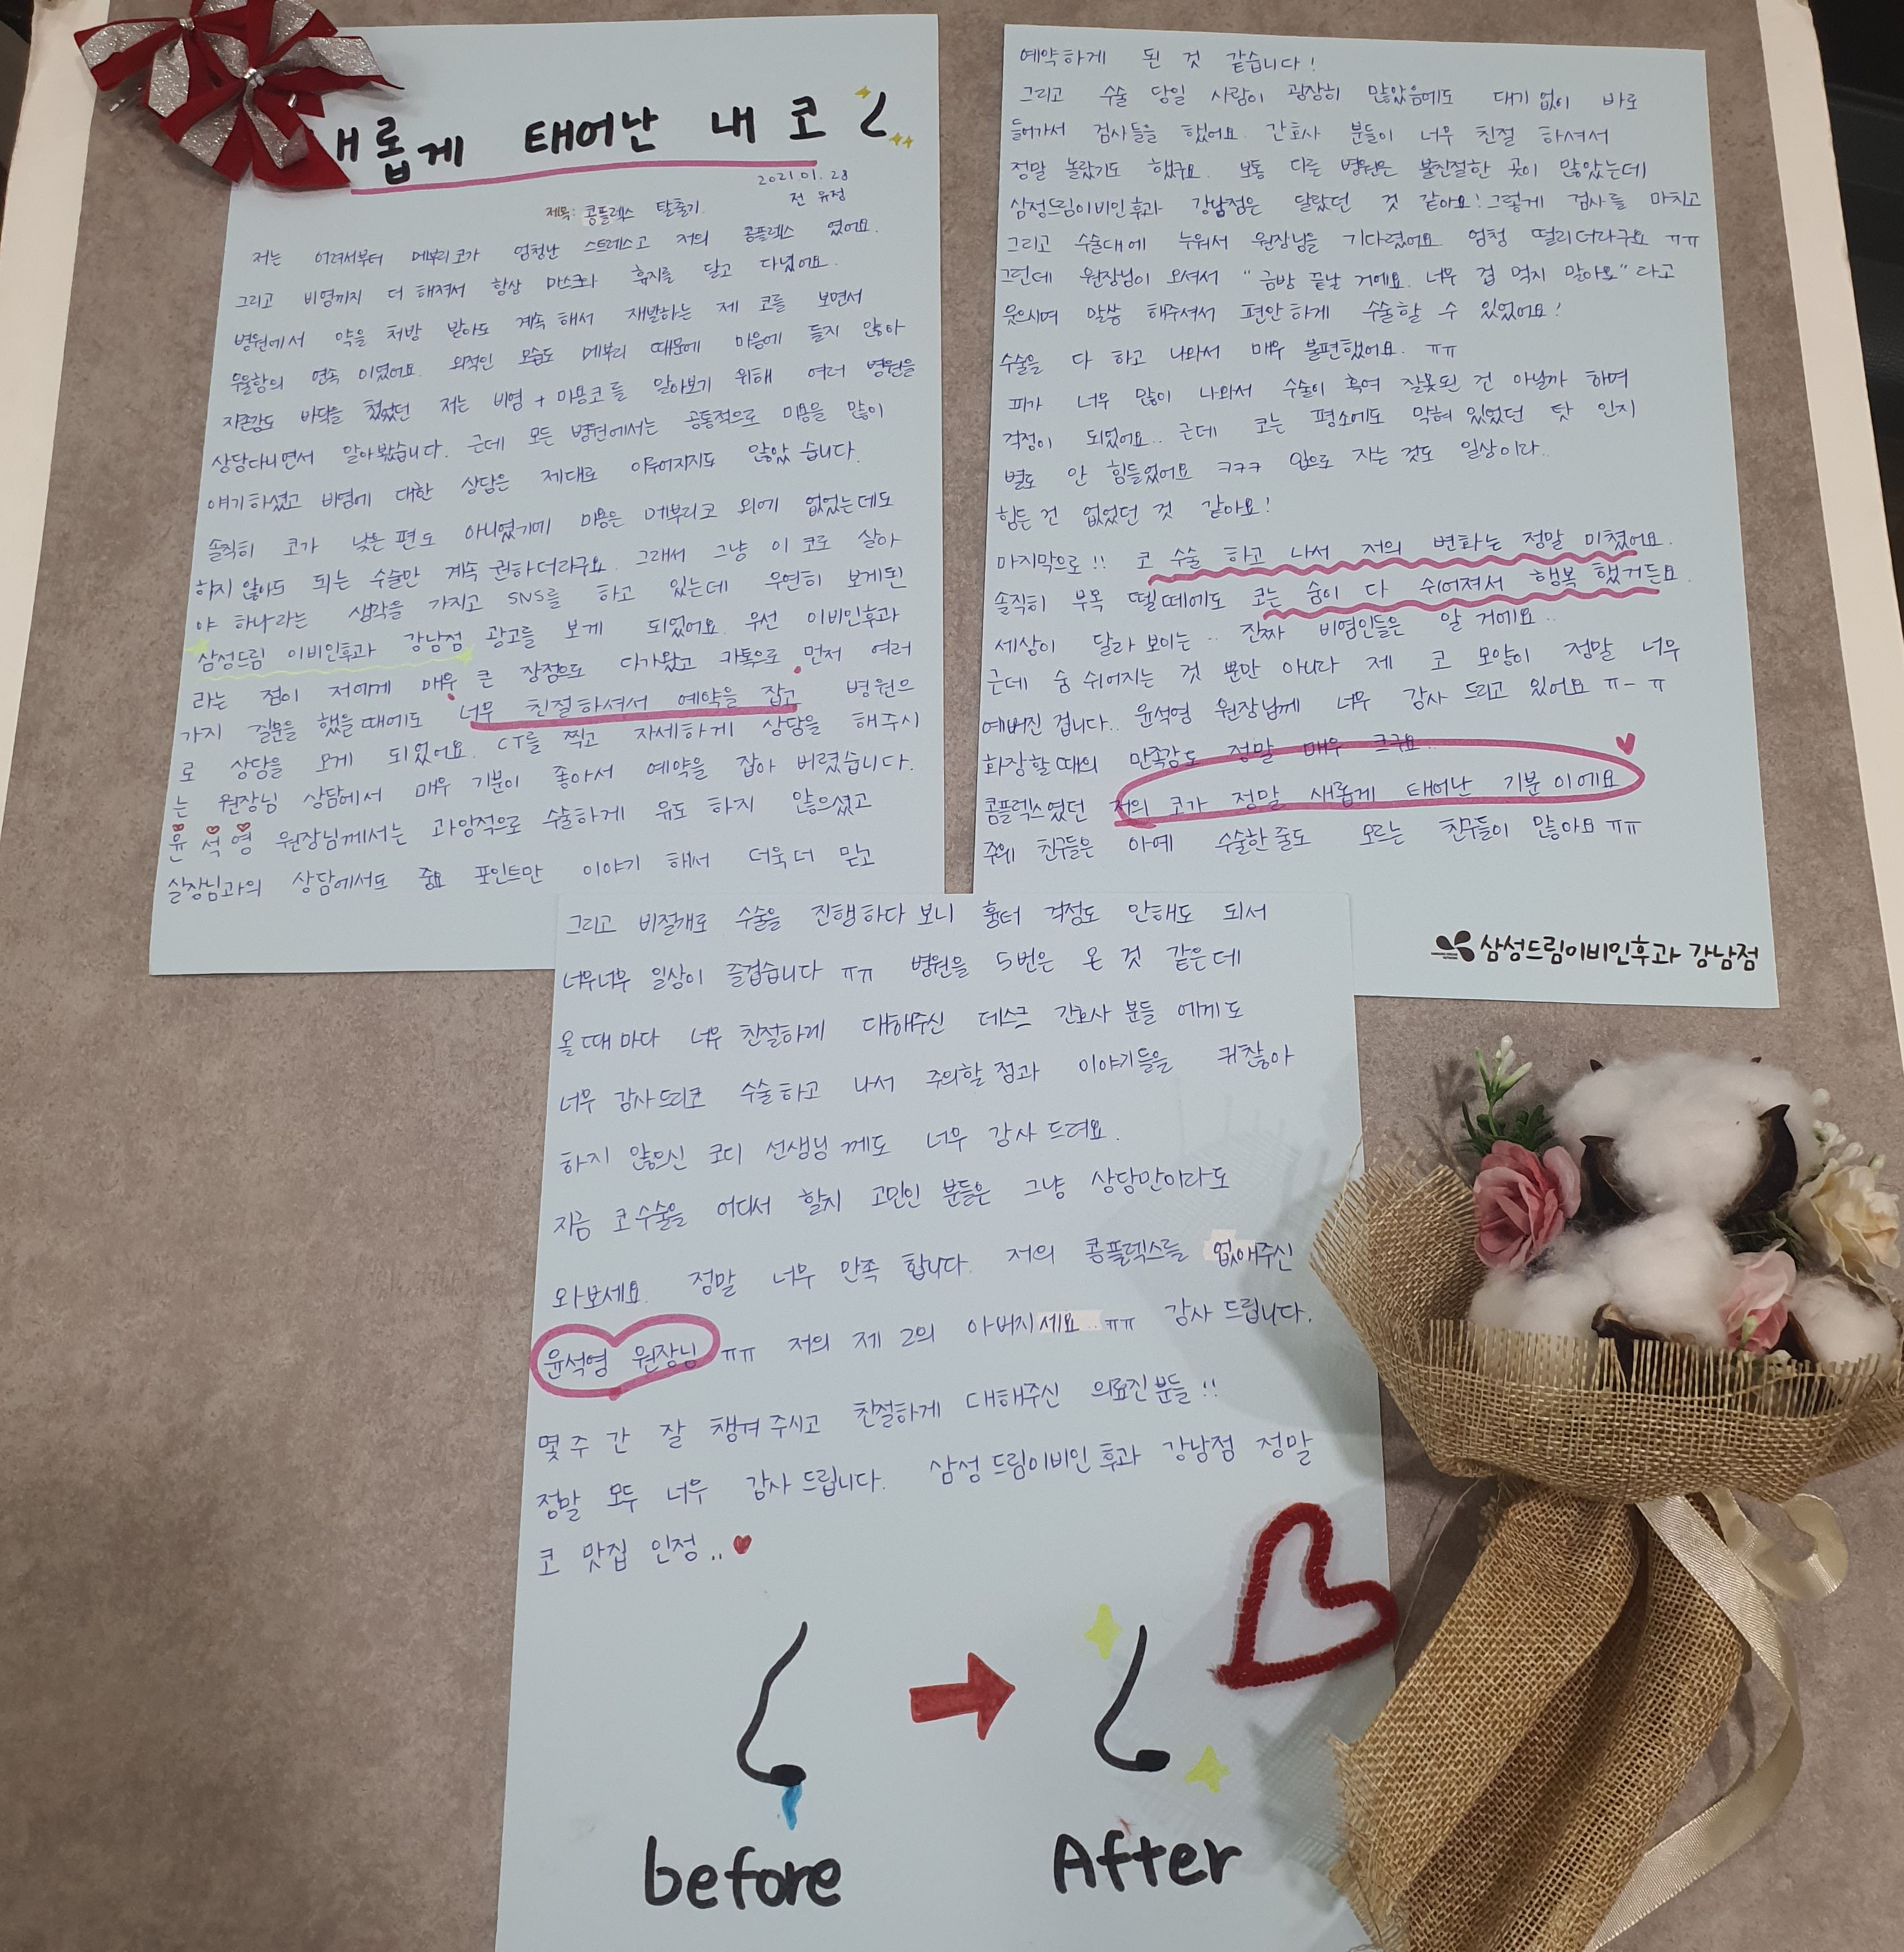 새롭게 태어난 내 코
2021.01.28
전 유정
제목: 콤플렉스 탈출기.
저는 어려서부터 메부리코가 엄청난 스트레스고 저의 콤플렉스 였어요.
그리고 비염까지 더 해져서 항상 마스크와 휴지를 달고 다녔어요.
병원에서 약을 처방 받아도 계속 해서 재발하는 제 코를 보면서
우울함의 연속 이였어요. 외적인 모습도 메부리 때문에 마음에 들지 않아
자존감도 바닥을 쳤었던 저는 비염 + 미용코를 알아보기 위해 여러 병원을
상담다니면서 알아봤습니다. 근데 모든 병원에서는 공통적으로 미용을 많이
얘기하셨고 비염에 대한 상담은 제대로 이루어지지도 않았 습니다.
솔직히 코가 낮은 편도 아니였기에 미용은 메부리코 외에 없었는데도
하지 않아도 되는 수술만 계속 권하더라구요. 그래서 그냥 이 코로 살아
야 하나라는 생각을 가지고 SNS를 하고 있는데 우연히 보게된
삼성드림 이비인후과 강남점 광고를 보게 되었어요. 우선 이비인후과
라는 점이 저에게 매우 큰 장점으로 다가왔고 카톡으로 먼저 여러
가지 질문을 했을때에도 너무 친절하셔서 예약을 잡고 병원으
로 상담을 오게 되었어요. CT를 찍고 자세하게 상담을 해주시
는 원장님 상담에서 매우 기분이 좋아서 예약을 잡아 버렸습니다.
윤석영 원장님께서는 과잉적으로 수술하게 유도 하지 않으셨고
실장님과의 상담에서도 중요 포인트만 이야기 해서 더욱더 믿고
예약하게 된 것 같습니다!
그리고 수술 당일 사람이 굉장히 많았음에도 대기 없이 바로
들어가서 검사들을 했어요. 간호사 분들이 너무 친절 하셔서
정말 놀랐기도 했구요. 보통 다른 병원은 불친절한 곳이 많았는데
삼성드림이비인후과 강남점은 달랐던 것 같아요! 그렇게 검사를 마치고
그리고 수술대에 누워서 원장님을 기다렸어요. 엄청 떨리더라구요 ㅠㅠ
그런데 원장님이 오셔서 "금방 끝날 거에요. 너무 겁 먹지 말아요" 라고
웃으시며 말씀 해주셔서 편안하게 수술할 수 있었어요!
수술을 다 하고 나와서 매우 불편했어요. ㅠㅠ
피가 너무 많이 나와서 수술이 혹여 잘못된 건 아닐까 하며
걱정이 되었어요.. 근데 코는 평소에도 막혀 있었던 탓 인지
별로 안 힘들었어요 ㅋㅋㅋ 입으로 자는 것도 일상이라..
힘든 건 없었던 것 같아요!
마지막으로!! 코 수술 하고 나서 저의 변화는 정말 미쳤어요.
솔직히 부목 뗄 때에도 코는 숨이 다 쉬어져서 행복 했거든요.
세상이 달라 보이는.. 진짜 비염인들은 알 거에요..
근데 숨 쉬어지는 것 뿐만 아니라 제 코 모양이 정말 너무
예뻐진 겁니다.. 윤석영 원장님께 너무 감사 드리고 있어요 ㅠ-ㅠ
화장할 때의 만족감도 정말 매우 크구요..
콤플렉스였던 저의 코가 정말 새롭게 태어난 기분이에요
주위 친구들은 아예 수술한 줄도 모르는 친구들이 많아요 ㅠㅠ
삼성드림이비인후과 강남점
그리고 비절개로 수술을 진행하다 보니 흉터 걱정도 안해도 되서
너무너무 일상이 즐겁습니다 ㅠㅠ 병원을 5번은 온 것 같은데
올 때 마다 너무 친절하게 대해주신 데스크 간호사 분들 에게도
너무 감사드리고 수술하고 나서 주의할 점과 이야기들을 귀찮아
하지 않으신 코디 선생님 께도 너무 감사 드려요.
지금 코수술을 어디서 할지 고민인 분들은 그냥 상담만이라도
와보세요. 정말 너무 만족 합니다. 저의 콤플렉스를 없애주신
윤석영 원장님 ㅠㅠ 저의 제 2의 아버지세요.. ㅠㅠ 감사 드립니다.
몇 주 간 잘 챙겨 주시고 친절하게 대해주신 의료진분들!!
정말 모두 너무 감사 드립니다. 삼성드림이비인후과 강남점 정말
코 맛집 인정..
before
After